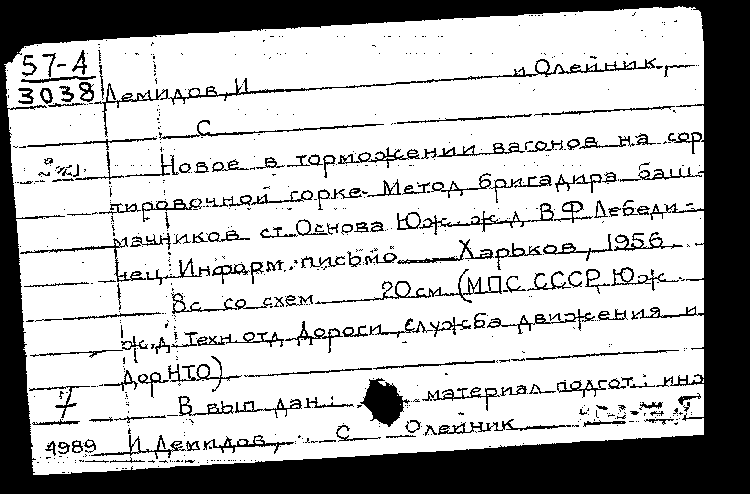 57-4
3038 Демидов, И и Олейник,
С
Новое в торможении вагонов на сор
тировочной горке. Метод бригадира баш-
мачников ст. Основа Юж. ж.д. В.Ф. Лебеди-
нец. Информ. письмо Харьков, 1956.
8с. со схем. 20см. (МПС СССР, Юж.
ж.д. Техн. отд. Дороги, служба движения и
ДорНТО)
7 В вып. дан.: материал подгот.: инж
1989 И. Демидов, С. Олейник